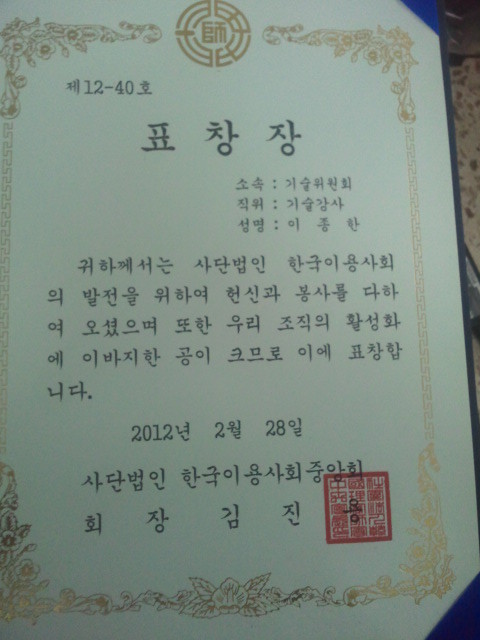 師
제12-40호
표 창 장
소속 : 기술위원회
직위 : 기술강사
성명 : 이 종 한
귀하께서는 사단법인 한국이용사회
의 발전을 위하여 헌신과 봉사를 다하
여 오셨으며 또한 우리 조직의 활성화
에 이바지한 공이 크므로 이에 표창합
니다.
2012년 2월 28일
사단법인 한국이용사회중앙회
회 장 김 진 용